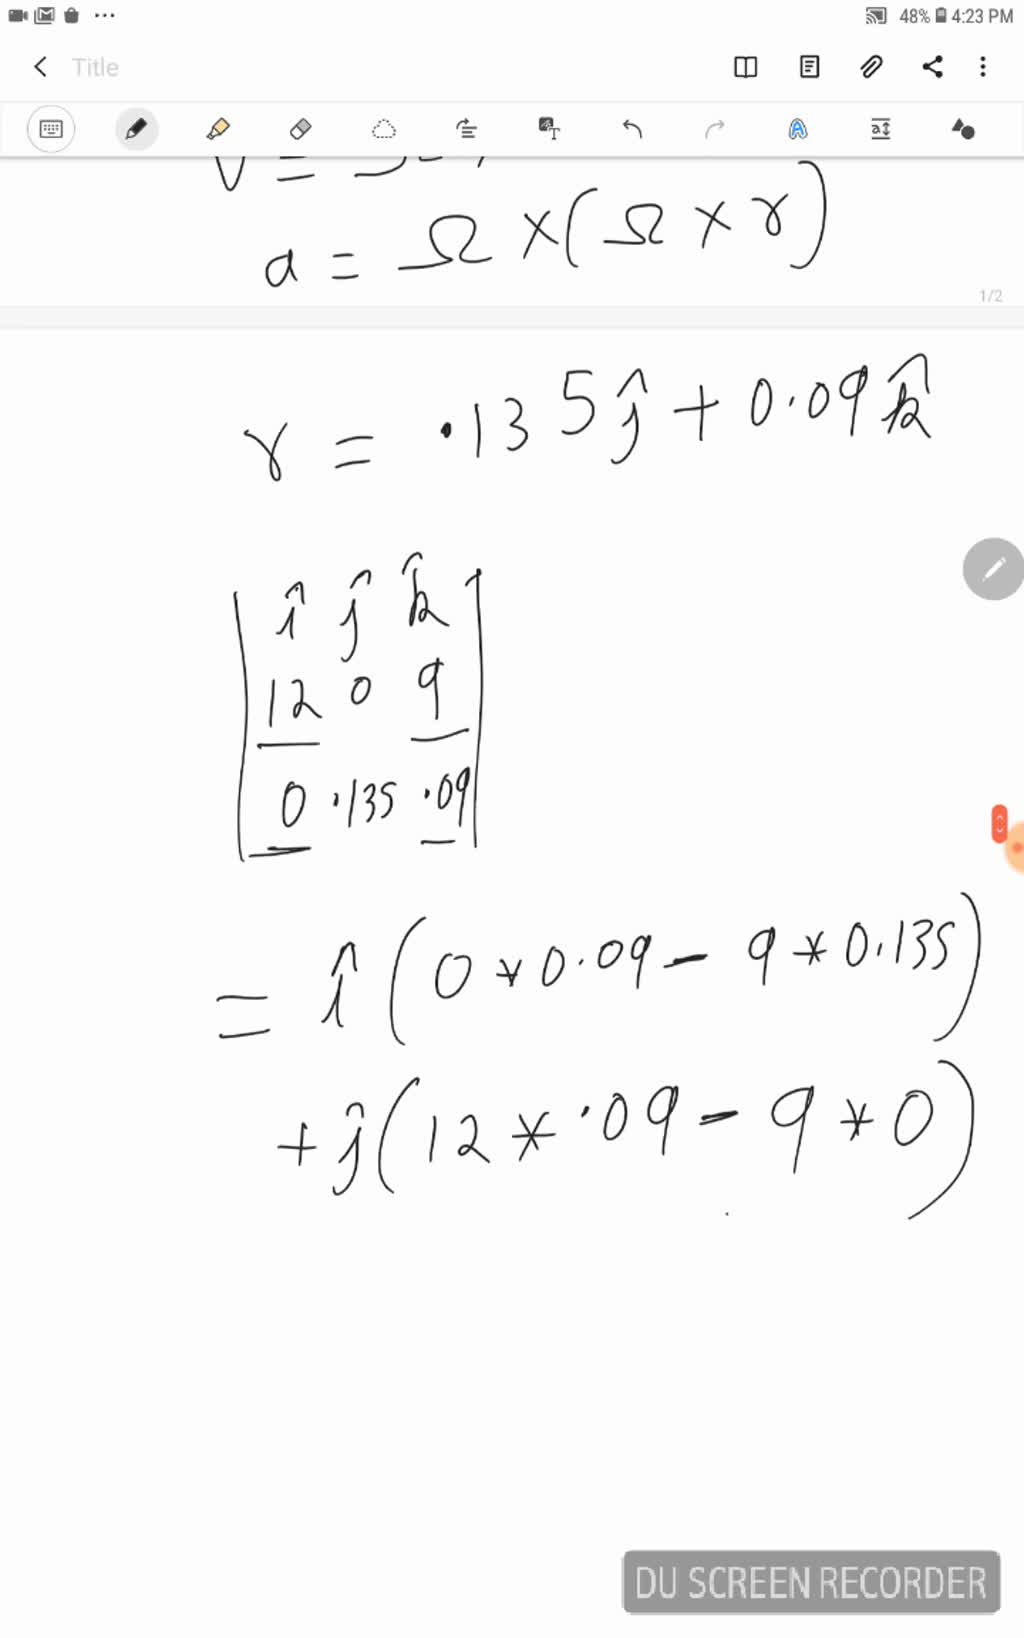 48% 4:23 PM
Title
a = Ω × (Ω × r)
1/2
r = .135 ĵ + 0.09 k̂
î ĵ k̂
12 0 9
0 .135 .09
= î (0 * 0.09 - 9 * 0.135)
+ ĵ (12 * .09 - 9 * 0)
DU SCREEN RECORDER